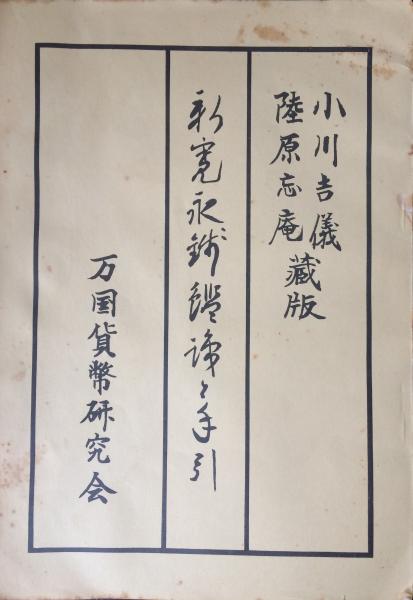 小川吉儀
陸原忘庵 藏版
新寛永銭鑑識と手引
万国貨幣研究会